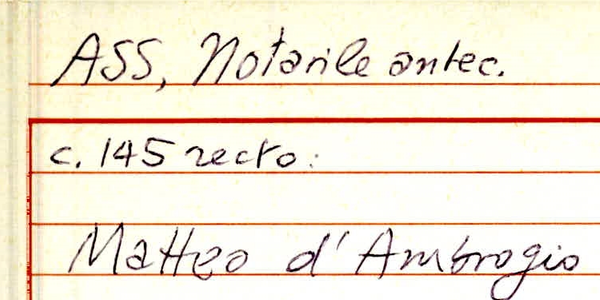 ASS, Notarile antec.
c. 145 recto:
Matteo d'Ambrogio